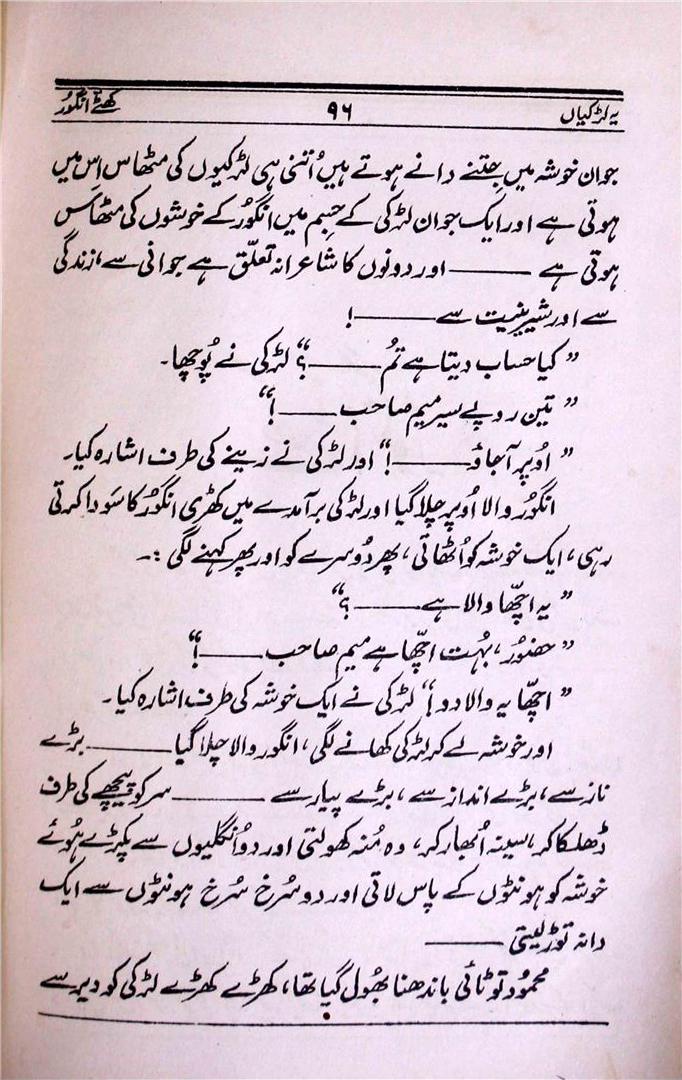 یہ لڑکیاں ۹۶ کھٹّے انگوُر
جوان خوشہ میں جِتنے دانے ہوتے ہیں اُتنی ہی لڑکیوں کی مٹھاس اِس میں
ہوتی ہے اور ایک جوان لڑکی کے جِسم میں انگوُر کے خوشوں کی مٹھاس
ہوتی ہے ——— اور دونوں کا شاعرانہ تعلّق ہے جوانی سے، زندگی
سے اور شیرینیت سے ——— !
”کیا حساب دیتا ہے تُم ———؟“ لڑکی نے پوُچھا۔
”تین روپے سیر میم صاحب ———!“
”اوُپر آجاؤ ———!“ اور لڑکی نے زینے کی طرف اشارہ کیا۔
انگوُر والا اوُپر چلا گیا اور لڑکی برآمدے میں کھڑی انگوُر کا سَودا کرتی
رہی، ایک خوشہ کو اُٹھاتی، پھر دُوسرے کو اور پھر کہنے لگی :۔
”یہ اچّھا والا ہے ———؟“
”حضوُر، بہُت اچّھا ہے میم صاحب ———!“
”اچّھا یہ والا دو!“ لڑکی نے ایک خوشہ کی طرف اشارہ کیا۔
اور خوشہ لے کر لڑکی کھانے لگی، انگور والا چلا گیا ——— بڑے
ناز سے، بڑے انداز سے، بڑے پیار سے ——— سر کو پیچھے کی طرف
ڈھلکا کر، سینہ اُبھار کر، وہ مُنہ کھولتی اور دو اُنگلیوں سے پکڑے ہوُئے
خوشہ کو ہونٹوں کے پاس لاتی اور دو سُرخ سُرخ ہونٹوں سے ایک
دانہ توڑ لیتی ———
محموُد تو ٹائی باندھنا بھُول گیا تھا، کھڑے کھڑے لڑکی کو دیر سے